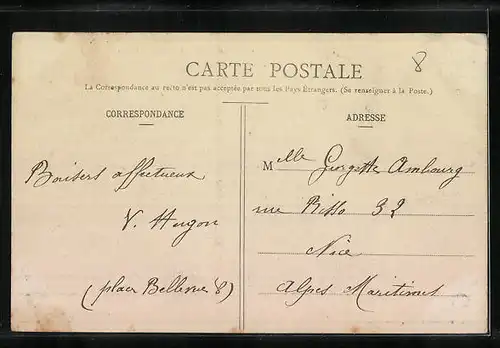 8
CARTE POSTALE
La Correspondance au recto n'est pas acceptée par tous les Pays Étrangers. (Se renseigner à la Poste.)
CORRESPONDANCE
Baisers affectueux
V. Hugon
(place Bellevue 8)
ADRESSE
Melle Georgette Ambourg
rue Risso 32
Nice
Alpes Maritimes